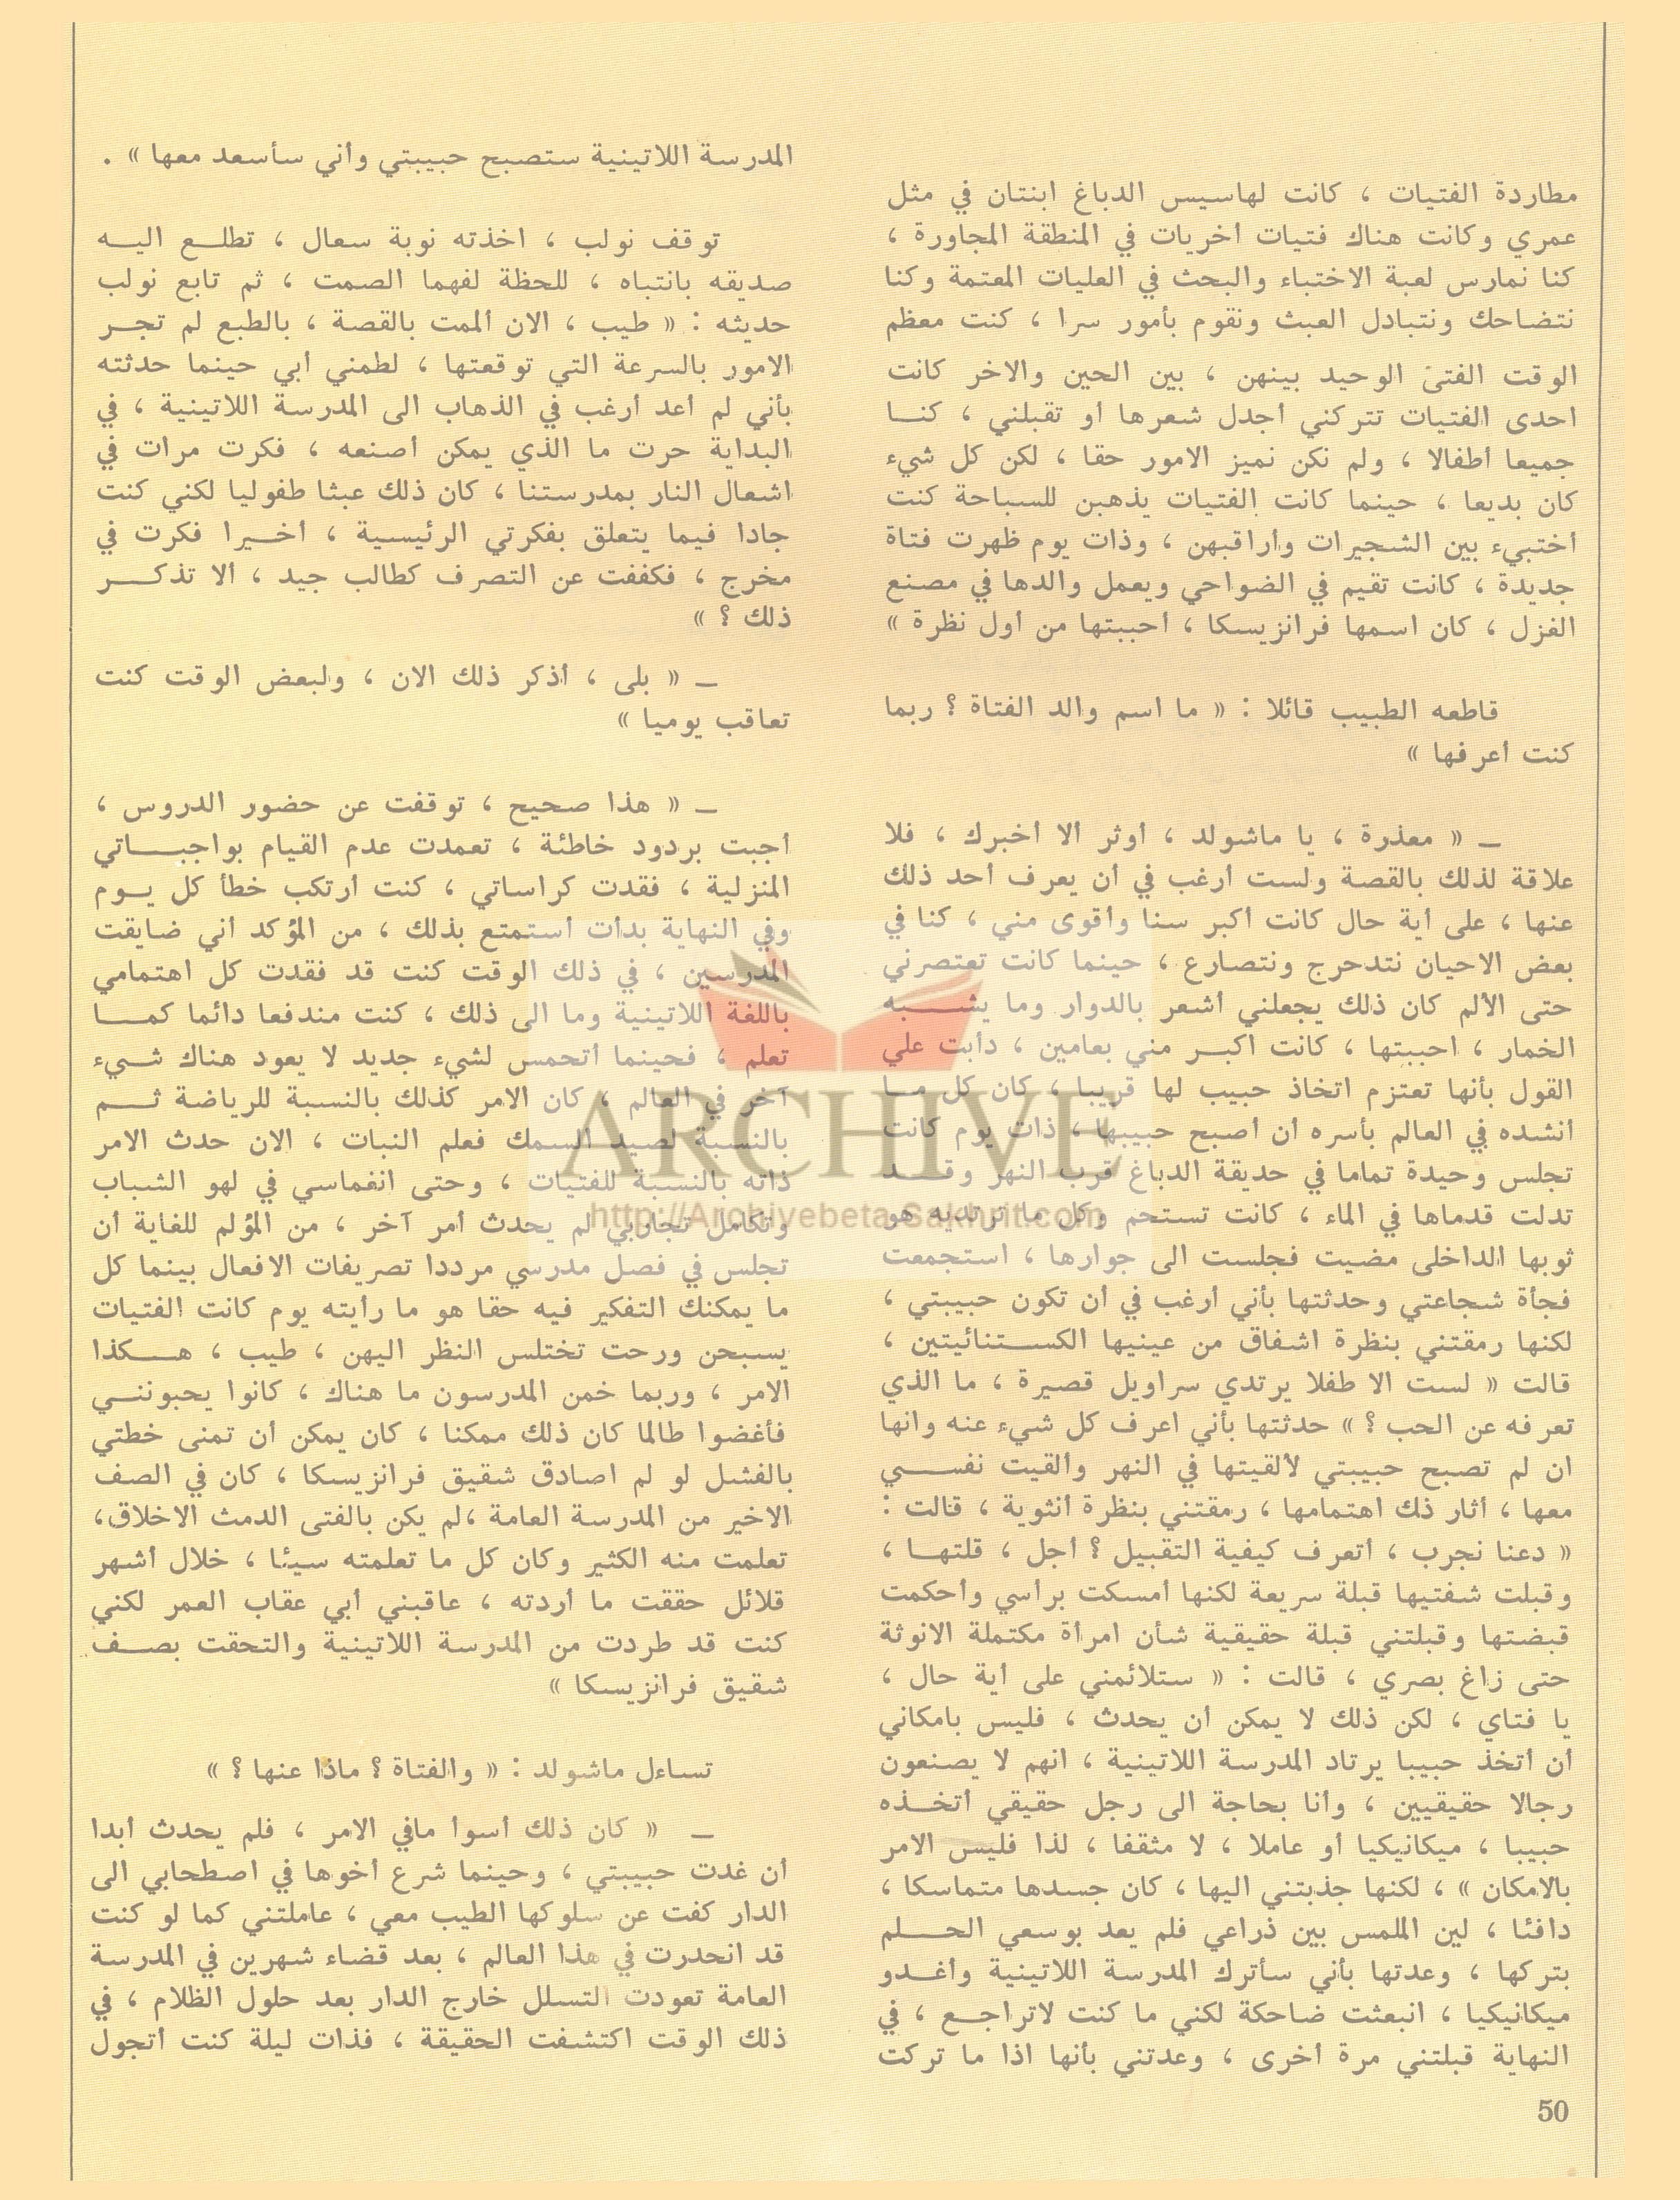 مطاردة الفتيات ، كانت لهاسيس الدباغ ابنتان في مثل
عمري وكانت هناك فتيات أخريات في المنطقة المجاورة ،
كنا نمارس لعبة الاختباء والبحث في العليات المعتمة وكنا
نتضاحك ونتبادل العبث ونقوم بأمور سرا ، كنت معظم
الوقت الفتى الوحيد بينهن ، بين الحين والاخر كانت
احدى الفتيات تتركني أجدل شعرها أو تقبلني ، كنا
جميعا أطفالا ، ولم نكن نميز الامور حقا ، لكن كل شيء
كان بديعا ، حينما كانت الفتيات يذهبن للسباحة كنت
أختبيء بين الشجيرات وأراقبهن ، وذات يوم ظهرت فتاة
جديدة ، كانت تقيم في الضواحي ويعمل والدها في مصنع
الغزل ، كان اسمها فرانزيسكا ، أحببتها من أول نظرة »
قاطعه الطبيب قائلا : « ما اسم والد الفتاة ؟ ربما
كنت أعرفها »
ــ « معذرة ، يا ماشولد ، أوثر ألا أخبرك ، فلا
علاقة لذلك بالقصة ولست أرغب في أن يعرف أحد ذلك
عنها ، على أية حال كانت أكبر سنا وأقوى مني ، كنا في
بعض الاحيان نتدحرج ونتصارع ، حينما كانت تعتصرني
حتى الألم كان ذلك يجعلني أشعر بالدوار وما يشبه
الخمار ، احببتها ، كانت اكبر مني بعامين ، دأبت علي
القول بأنها تعتزم اتخاذ حبيب لها قريبا ، كان كل ما
أنشده في العالم بأسره أن أصبح حبيبها ، ذات يوم كانت
تجلس وحيدة تماما في حديقة الدباغ قرب النهر وقد
تدلت قدماها في الماء ، كانت تستحم وكل ما ترتديه هو
ثوبها الداخلى مضيت فجلست الى جوارها ، استجمعت
فجأة شجاعتي وحدثتها بأني أرغب في أن تكون حبيبتي ،
لكنها رمقتني بنظرة اشفاق من عينيها الكستنائيتين ،
قالت « لست الا طفلا يرتدي سراويل قصيرة ، ما الذي
تعرفه عن الحب ؟ » حدثتها بأني اعرف كل شيء عنه وانها
ان لم تصبح حبيبتي لألقيتها في النهر وألقيت نفسي
معها ، أثار ذك اهتمامها ، رمقتني بنظرة أنثوية ، قالت :
« دعنا نجرب ، أتعرف كيفية التقبيل ؟ أجل ، قلتها ،
وقبلت شفتيها قبلة سريعة لكنها أمسكت برأسي وأحكمت
قبضتها وقبلتني قبلة حقيقية شأن امرأة مكتملة الانوثة
حتى زاغ بصري ، قالت : « ستلائمني على أية حال ،
يا فتاي ، لكن ذلك لا يمكن أن يحدث ، فليس بامكاني
أن أتخذ حبيبا يرتاد المدرسة اللاتينية ، انهم لا يصنعون
رجالا حقيقيين ، وأنا بحاجة الى رجل حقيقي أتخذه
حبيبا ، ميكانيكيا أو عاملا ، لا مثقفا ، لذا فليس الامر
بالامكان » ، لكنها جذبتني اليها ، كان جسدها متماسكا ،
دافئا ، لين الملمس بين ذراعي فلم يعد بوسعي الحلم
بتركها ، وعدتها بأني سأترك المدرسة اللاتينية وأغدو
ميكانيكيا ، انبعثت ضاحكة لكني ما كنت لاتراجع ، في
النهاية قبلتني مرة أخرى ، وعدتني بأنها اذا ما تركت
المدرسة اللاتينية ستصبح حبيبتي وأني سأسعد معها » .
توقف نولب ، اخذته نوبة سعال ، تطلع اليه
صديقه بانتباه ، للحظة لفهما الصمت ، ثم تابع نولب
حديثه : « طيب ، الان ألممت بالقصة ، بالطبع لم تجر
الامور بالسرعة التي توقعتها ، لطمني أبي حينما حدثته
بأني لم أعد أرغب في الذهاب الى المدرسة اللاتينية ، في
البداية حرت ما الذي يمكن أصنعه ، فكرت مرات في
اشعال النار بمدرستنا ، كان ذلك عبثا طفوليا لكني كنت
جادا فيما يتعلق بفكرتي الرئيسية ، أخيرا فكرت في
مخرج ، فكففت عن التصرف كطالب جيد ، ألا تذكر
ذلك ؟ »
ــ « بلى ، أذكر ذلك الان ، ولبعض الوقت كنت
تعاقب يوميا »
ــ « هذا صحيح ، توقفت عن حضور الدروس ،
أجبت بردود خاطئة ، تعمدت عدم القيام بواجباتي
المنزلية ، فقدت كراساتي ، كنت أرتكب خطأ كل يوم
وفي النهاية بدأت أستمتع بذلك ، من المؤكد أني ضايقت
المدرسين ، في ذلك الوقت كنت قد فقدت كل اهتمامي
باللغة اللاتينية وما الى ذلك ، كنت مندفعا دائما كما
تعلم ، فحينما أتحمس لشيء جديد لا يعود هناك شيء
آخر في العالم ، كان الامر كذلك بالنسبة للرياضة ثم
بالنسبة لصيد السمك فعلم النبات ، الان حدث الامر
ذاته بالنسبة للفتيات ، وحتى انغماسي في لهو الشباب
وتكامل تجاربي لم يحدث أمر آخر ، من المؤلم للغاية أن
تجلس في فصل مدرسي مرددا تصريفات الافعال بينما كل
ما يمكنك التفكير فيه حقا هو ما رأيته يوم كانت الفتيات
يسبحن ورحت تختلس النظر اليهن ، طيب ، هكذا
الامر ، وربما خمن المدرسون ما هناك ، كانوا يحبونني
فأغضوا طالما كان ذلك ممكنا ، كان يمكن أن تمنى خطتي
بالفشل لو لم اصادق شقيق فرانزيسكا ، كان في الصف
الاخير من المدرسة العامة ،لم يكن بالفتى الدمث الاخلاق،
تعلمت منه الكثير وكان كل ما تعلمته سيئا ، خلال أشهر
قلائل حققت ما أردته ، عاقبني أبي عقاب العمر لكني
كنت قد طردت من المدرسة اللاتينية والتحقت بصف
شقيق فرانزيسكا »
تساءل ماشولد : « والفتاة ؟ ماذا عنها ؟ »
ــ « كان ذلك أسوأ مافي الامر ، فلم يحدث أبدا
أن غدت حبيبتي ، وحينما شرع أخوها في اصطحابي الى
الدار كفت عن سلوكها الطيب معي ، عاملتني كما لو كنت
قد انحدرت في هذا العالم ، بعد قضاء شهرين في المدرسة
العامة تعودت التسلل خارج الدار بعد حلول الظلام ، في
ذلك الوقت اكتشفت الحقيقة ، فذات ليلة كنت أتجول
50
ARCHIVE
http://Archivebeta.Sakhrit.com